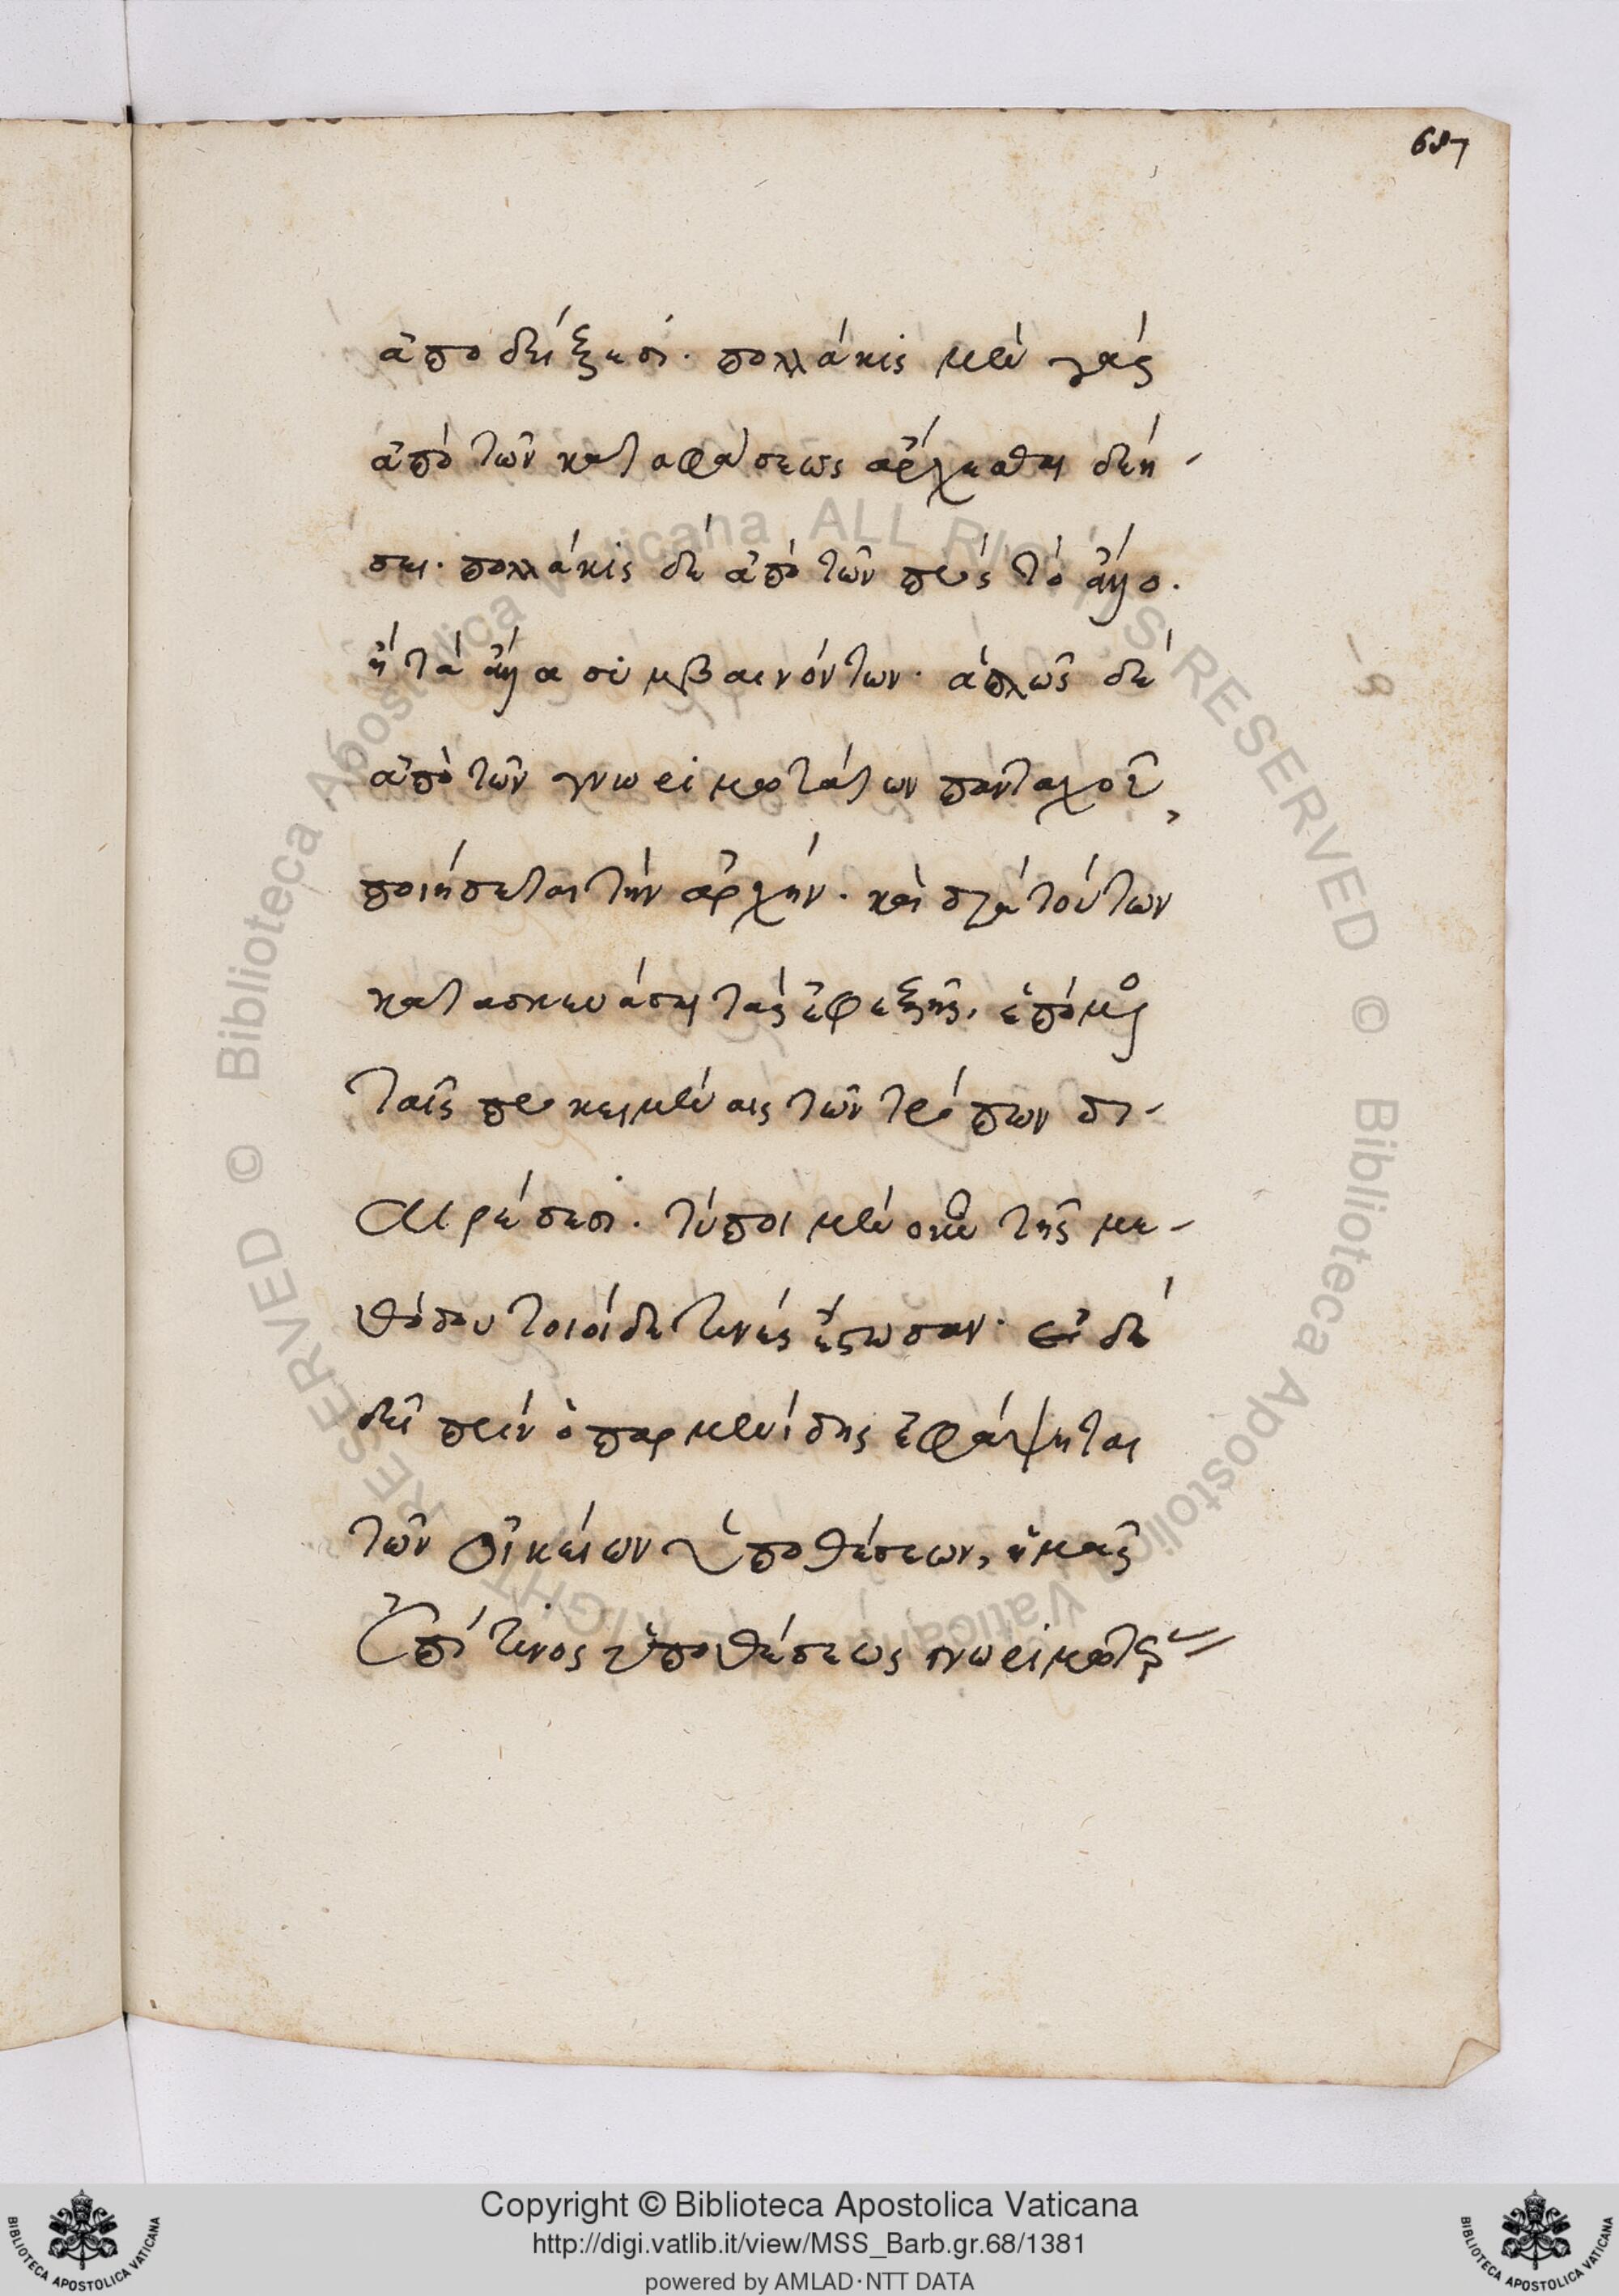 687
ἀποδείξεσι· πολλάκις μὲν γὰρ
ἀπὸ τῶν καταφάσεως ἄρχεσθαι δεή-
σει· πολλάκις δὲ ἀπὸ τῶν πρὸς τὸ ἄλλο·
ἢ τὰ ἄλλα συμβαινόντων· ἁπλῶς δὲ
ἀπὸ τῶν γνωριμοτάτων πανταχοῦ,
ποιήσεται τὴν ἀρχήν· καὶ διὰ τούτων
κατασκευάσει τὰς ἐφεξῆς, ἑπόμενος
ταῖς προκειμέναις τῶν τρόπων δι-
αιρέσεσι· τύποι μὲν οὖν τῆς με-
θόδου τοιοίδε τινὲς ἔστωσαν· εἰ δὲ
δεῖ πρὶν ὁ παρμενίδης ἐφάψηται
τῶν οἰκείων ὑποθέσεων, ἡμᾶς
ἐπί τινος ὑποθέσεως γνωριμοτέρας
Copyright © Biblioteca Apostolica Vaticana
http://digi.vatlib.it/view/MSS_Barb.gr.68/1381
powered by AMLAD·NTT DATA
BIBLIOTECA APOSTOLICA VATICANA
BIBLIOTECA APOSTOLICA VATICANA
© Biblioteca Apostolica Vaticana ALL RIGHTS RESERVED
© Biblioteca Apostolica Vaticana ALL RIGHTS RESERVED